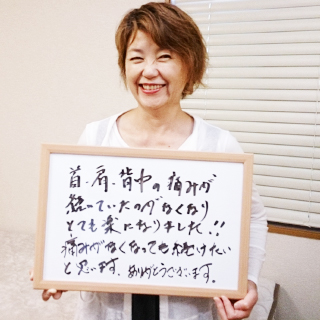 首、肩、背中の痛みが
続いていたのがなくなり
とても楽になりました!!
痛みがなくなっても続けたい
と思います。ありがとうございます。